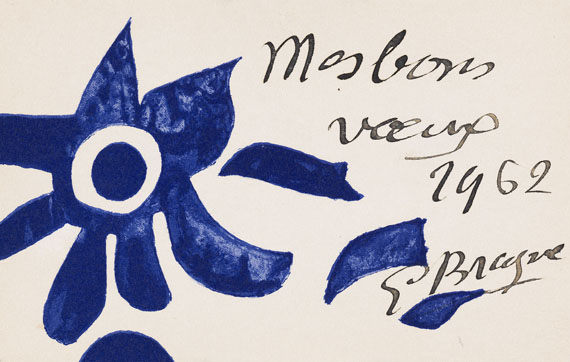 Mes bons
vœux
1962
G Braque